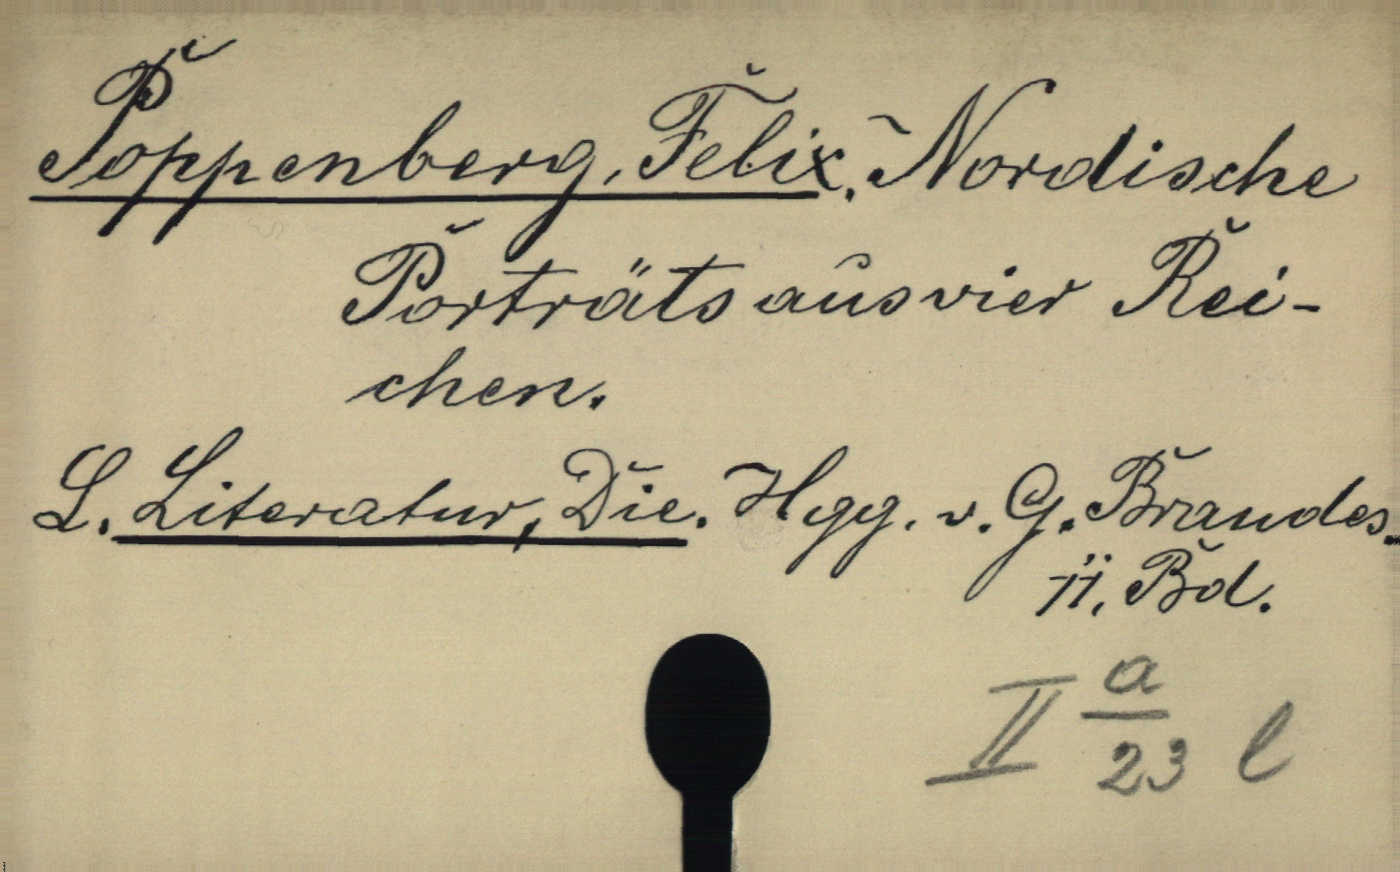 Poppenberg, Felix, Nordische
Porträts aus vier Rei-
chen.
S. Literatur, Die. Hgg. v. G. Brandes.
11. Bd.
II a/23 l